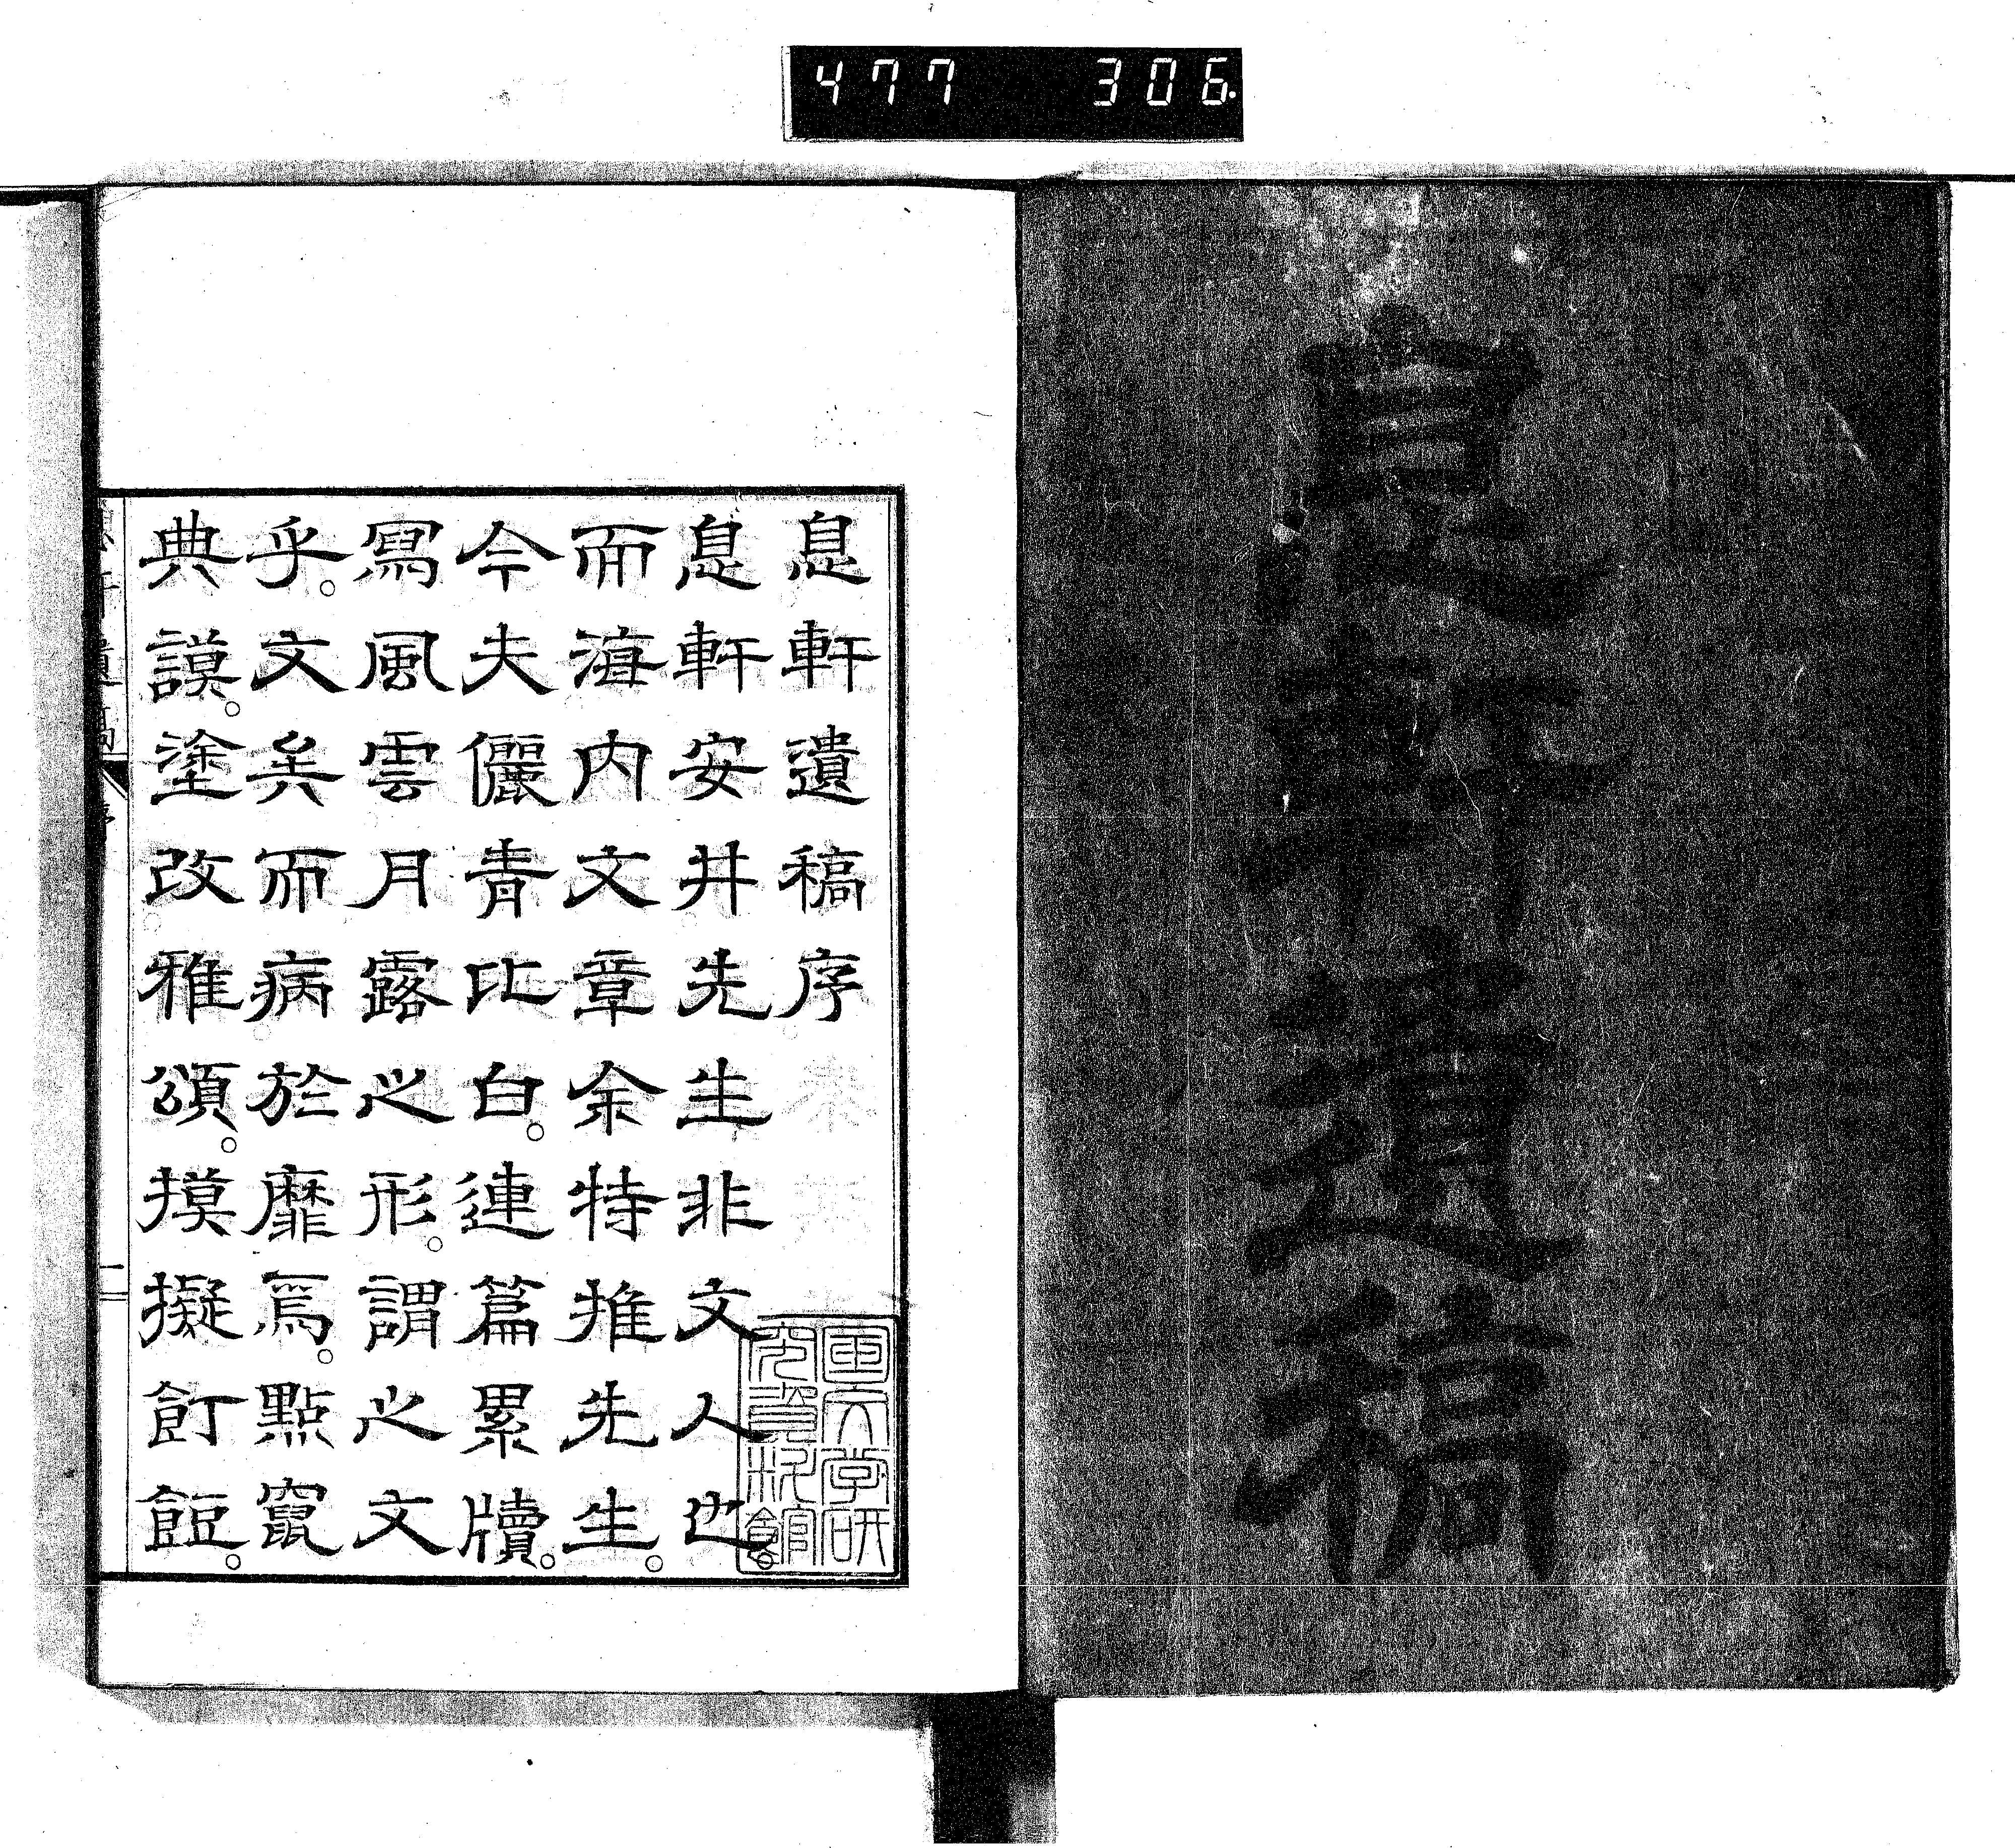 477 306
息軒遺稿
息軒遺稿序
息軒安井先生非文人也。
而海内文章余特推先生。
今夫儷青比白。連篇累牘。
寫風雲月露之形。謂之文
乎。文矣而病於靡焉。點竄
典謨。塗改雅頌。摸擬飣餖。
國文学研
究資料館